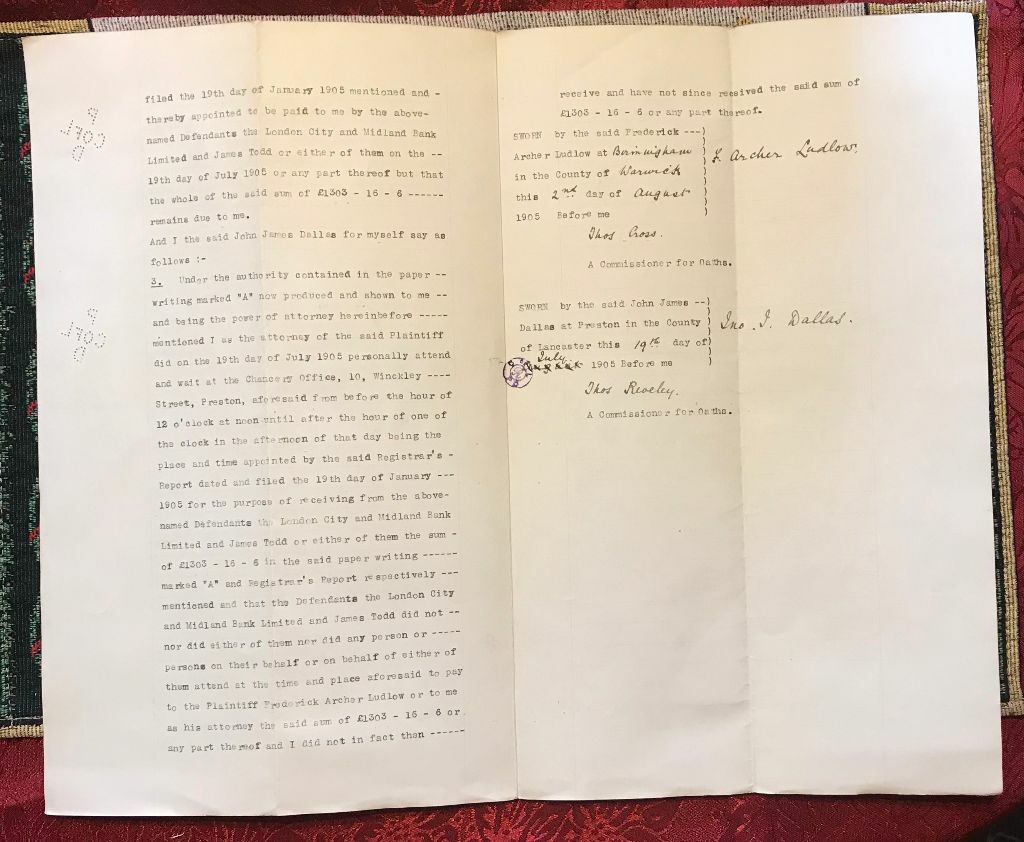 filed the 19th day of January 1905 mentioned and -
thereby appointed to be paid to me by the above-
named Defendants the London City and Midland Bank
Limited and James Todd or either of them on the --
19th day of July 1905 or any part thereof but that
the whole of the said sum of £1303 - 16 - 6 ------
remains due to me.
And I the said John James Dallas for myself say as
follows :-
3. Under the authority contained in the paper --
writing marked "A" now produced and shown to me --
and being the power of attorney hereinbefore -----
mentioned I as the attorney of the said Plaintiff
did on the 19th day of July 1905 personally attend
and wait at the Chancery Office, 10, Winckley ----
Street, Preston, aforesaid from before the hour of
12 o'clock at noon until after the hour of one of
the clock in the afternoon of that day being the
place and time appointed by the said Registrar's -
Report dated and filed the 19th day of January ---
1905 for the purpose of receiving from the above-
named Defendants the London City and Midland Bank
Limited and James Todd or either of them the sum -
of £1303 - 16 - 6 in the said paper writing ------
marked "A" and Registrar's Report respectively ---
mentioned and that the Defendants the London City
and Midland Bank Limited and James Todd did not --
nor did either of them nor did any person or -----
persons on their behalf or on behalf of either of
them attend at the time and place aforesaid to pay
to the Plaintiff Frederick Archer Ludlow or to me
as his attorney the said sum of £1303 - 16 - 6 or
any part thereof and I did not in fact then ------
receive and have not since received the said sum of
£1303 - 16 - 6 or any part thereof.
SWORN by the said Frederick ---)
Archer Ludlow at Birmingham ) F. Archer Ludlow.
in the County of Warwick )
this 2nd day of August )
1905 Before me )
Thos Cross.
A Commissioner for Oaths.
SWORN by the said John James --)
Dallas at Preston in the County ) Jno. J. Dallas.
of Lancaster this 19th day of)
July 1905 Before me )
Thos Reveley.
A Commissioner for Oaths.